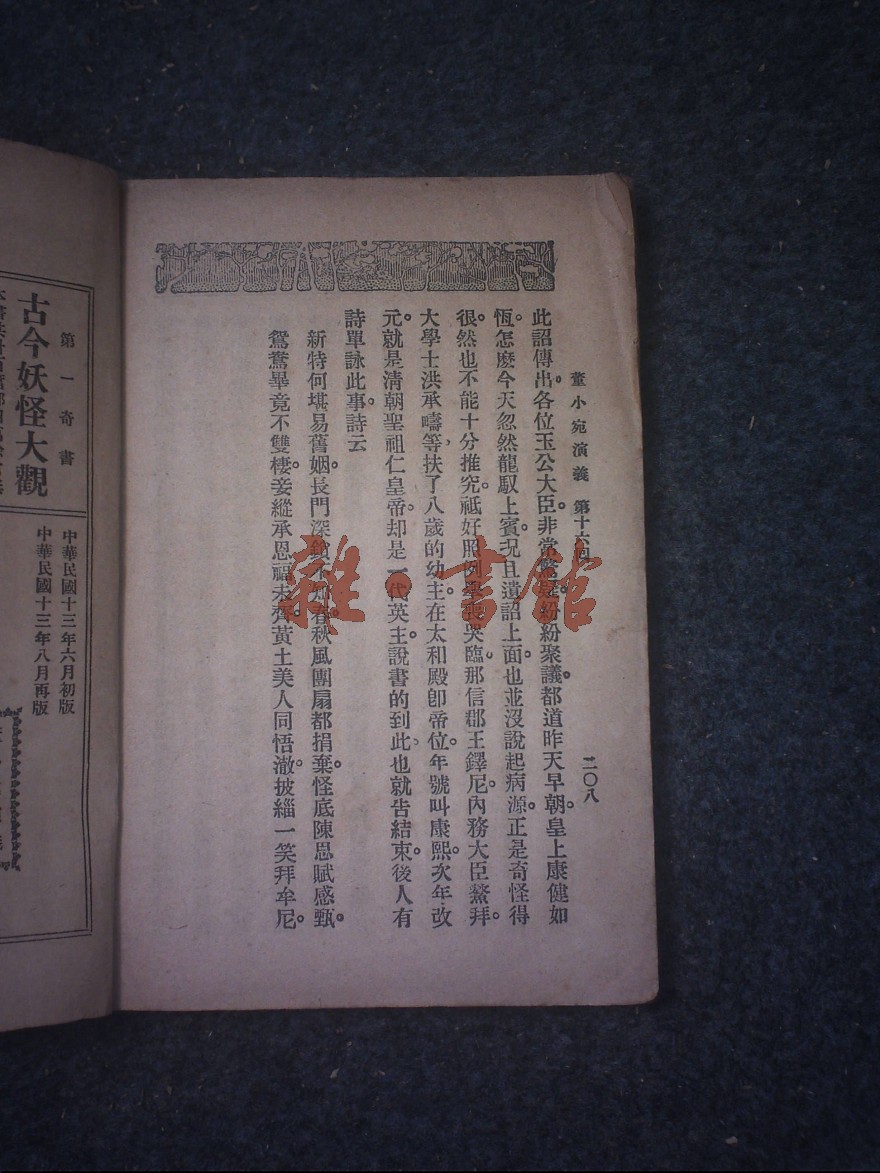 董小宛演義　第十六回　二〇八
此詔傳出。各位王公大臣。非常驚疑。紛紛聚議。都道昨天早朝。皇上康健如
恆。怎麼今天忽然龍馭上賓。況且遺詔上面。也並沒說起病源。正是奇怪得
很。然也不能十分推究。祇好照例舉喪哭臨。那信郡王鐸尼。內務大臣鰲拜。
大學士洪承疇等。扶了八歲的幼主。在太和殿卽帝位。年號叫康熙。次年改
元。就是清朝聖祖仁皇帝。却是一代英主。說書的到此。也就告結束。後人有
詩單詠此事。詩云
新特何堪易舊姻。長門深鎖不知春。秋風團扇都捐棄。怪底陳思賦感甄。
鴛鴦畢竟不雙棲。妾縱承恩福未齊。黃土美人同悟澈。披緇一笑拜牟尼。
第一奇書
古今妖怪大觀
中華民國十三年六月初版
中華民國十三年八月再版
雜·書館